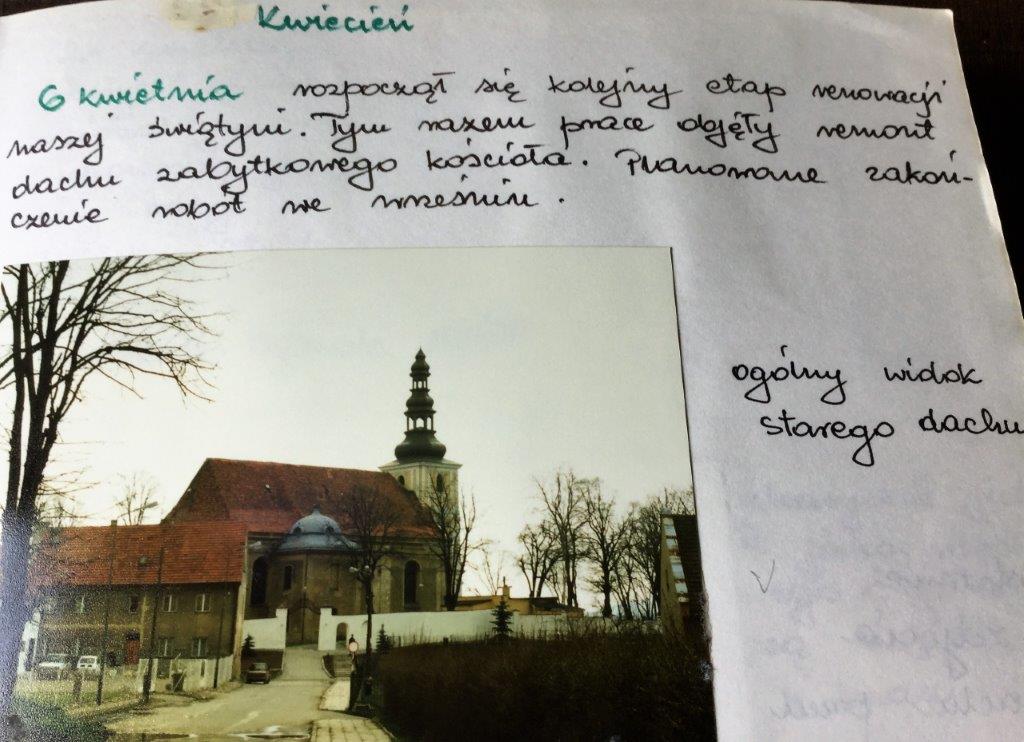 Kwiecień
6 kwietnia rozpoczął się kolejny etap renowacji
naszej świątyni. Tym razem prace objęły remont
dachu zabytkowego kościoła. Planowane zakoń-
czenie robót we wrześniu.
ogólny widok
starego dachu